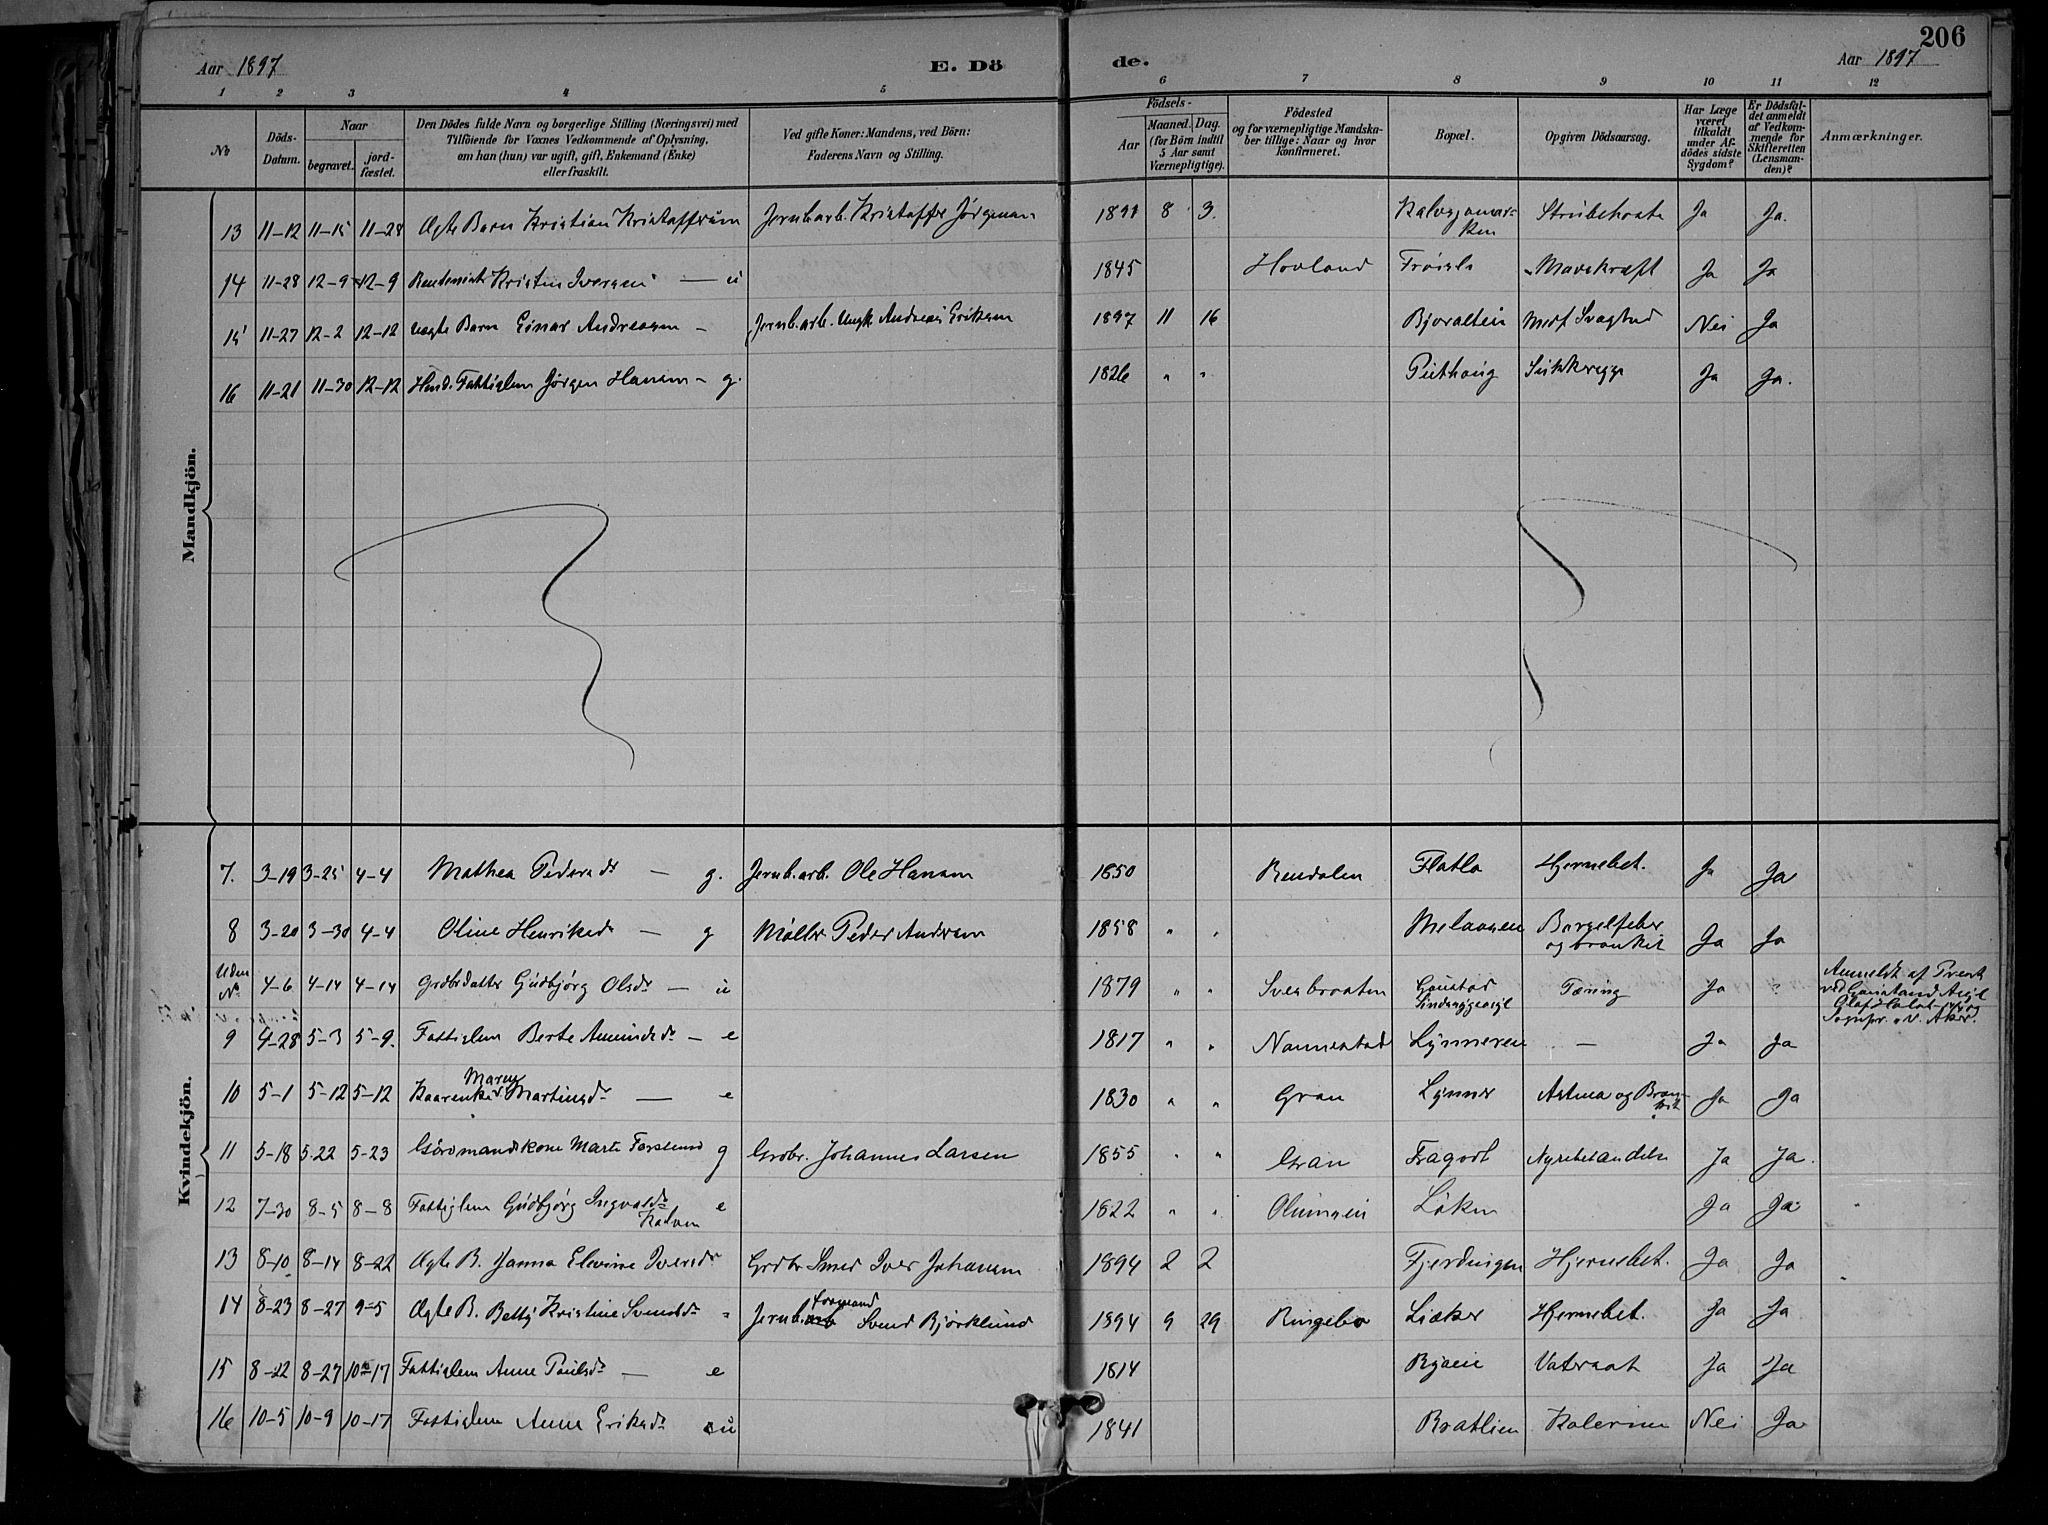 206
Aar 1897 E. Dö
de. Aar 1897
1 2 3 4 5 6 7 8 9 10 11 12
No Döds-Datum. Naar begravet. jord-fæstet. Den Dödes fulde Navn og borgerlige Stilling (Næringsvei) med Tilföiende for Voxnes Vedkommende af Oplysning, om han (hun) var ugift, gift, Enkemand (Enke) eller fraskilt. Ved gifte Koner: Mandens, ved Börn: Faderens Navn og Stilling. Födsels- Aar Maaned. Dag. (for Börn indtil 5 Aar samt Værnepligtige). Födested og for værnepligtige Mandskaber tillige: Naar og hvor konfirmeret. Bopæl. Opgiven Dödsaarsag. Har Læge været tilkaldt under Afdödes sidste Sygdom? Er Dödsfaldet anmeldt af Vedkommende for Skifteretten (Lensmanden)? Anmærkninger.
Mandkjön.
13 11-12 11-15 11-28 Ægte Barn Kristian Kristoffersen Jernb.arb. Kristoffer Jørgensen 8 3. Strubehoste Ja Ja.
14 11-28 12-9 12-9 Kristin Iversen — u 1845 Hovland Mavekræft Ja Ja
15 11-27 12-2 12-12 uægte Barn Einar Andreasen - Jernb.arb. Ungk. Andreas Eriksen 1897 11 16 Medf Svaghed Nei Ja
16 11-21 11-30 12-12 Fattiglem Jørgen Hansen - g. 1826 " " Ja Ja.
Kvindekjön.
7. 3-19 3-25 4-4 Mathea Pedersdr — g. Jernb.arb. Ole Hansen 1850 Rendalen Flatla Hjernebet. Ja Ja
8 3-20 3-30 4-4 Oline Henriksdr — g Møller Peder Andersen 1858 " " Melaasen Barselfeber og bronkit Ja Ja
Uden No 4-6 4-14 4-14 Grdbrdatter Gudbjørg Olsdr — u 1879 " " Svenbraaten Gaustad Sindssygeasyl Tæring Ja Anmeldt af Prest ved Gaustad Asyl Sognpr. i V. Aker.
9 4-28 5-3 5-9. Fattiglem Berte Amundsdr — e 1817 " " Nannestad Lynneren — Ja Ja
10 5-1 5-12 5-12 Kaarenke Maren Martinsdr — e 1830 " " Gran Lynner Astma og Bronkit Ja Ja
11 5-18 5-22 5-23 Gårdmandskone Marte g Grdbr. Johannes Larsen 1855 " " Gran Nyrebetændelse Ja Ja.
12 7-30 8-5 8-8 Fattiglem Gudbjørg Ingvaldsdr e 1822 " " Løken Ja Ja "
13 8-10 8-14 8-22 Ægte B. Hanna Elevine Iversdr Grdbr Smed Iver Johansen 1894 2 2 Fjerdingen Hjernebet. Ja Ja "
14 8-23 8-27 9-5 Ægte B. Betty Kristine Svendsdr " Jernb. formand Svend Bjørklund 1894 9 29 Ringebo Liaker Hjernebet. Ja Ja
15 8-22 8-27 10-17 Fattiglem Anne Paulsdr — e 1814 Vatersot Ja Ja
16 10-5 10-9 10-17 Fattiglem Anne Eriksdr u 1841 Bratlien Kolerine Nei Ja